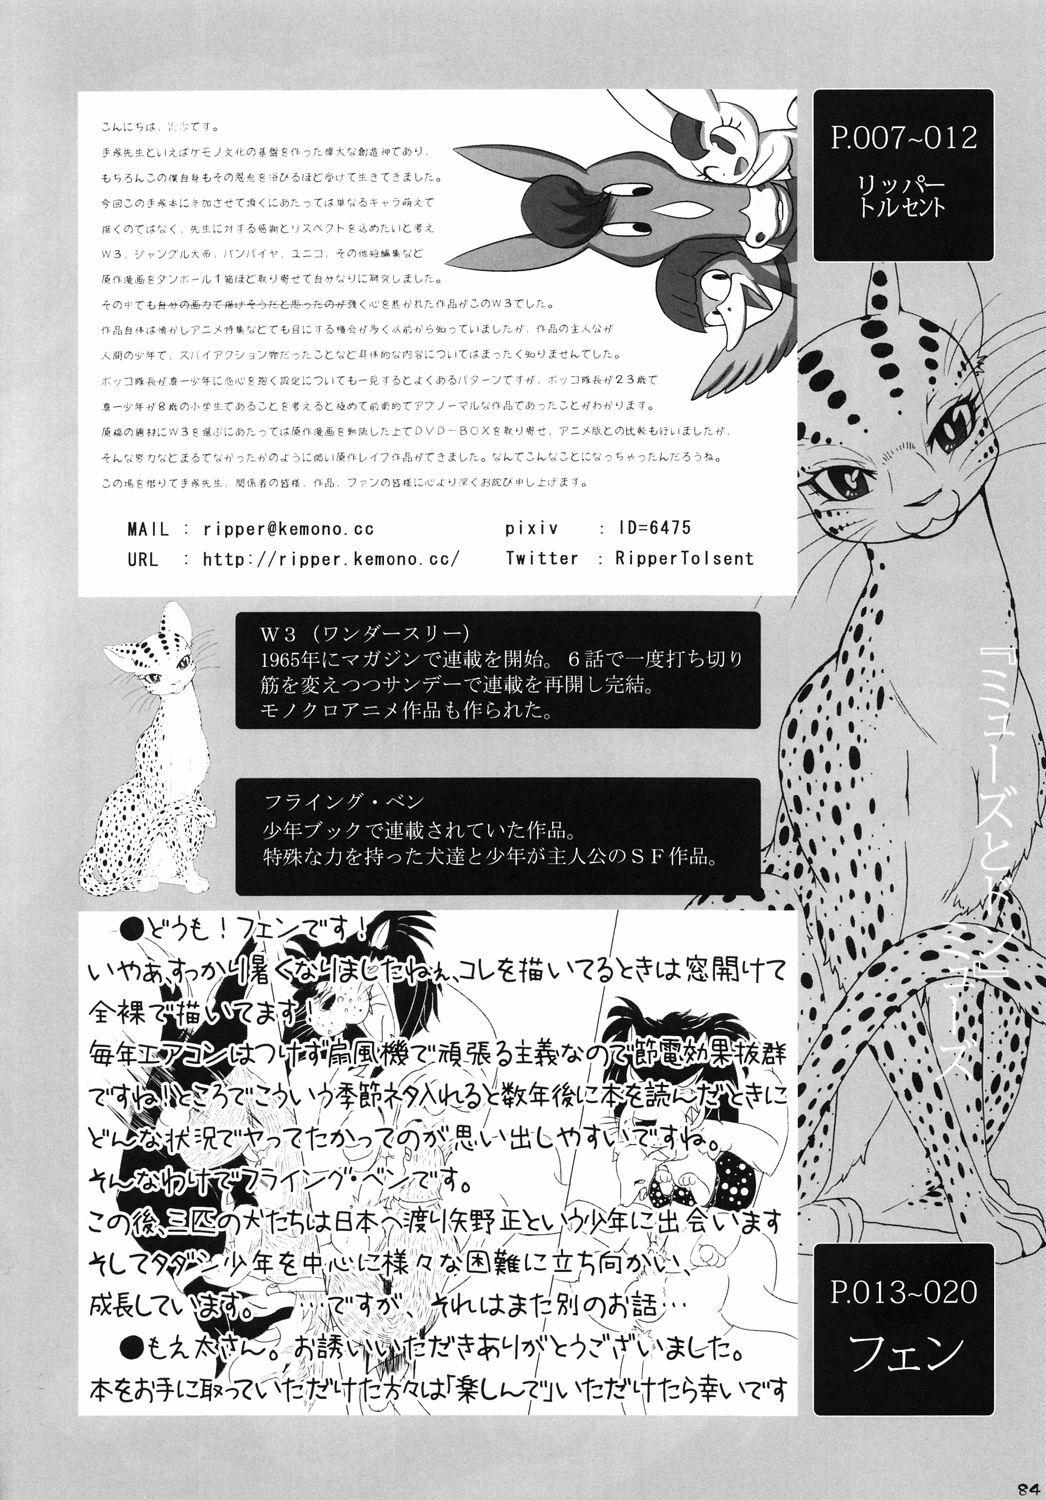 こんにちは、です。
手塚先生といえばケモノ文化の基盤を作った偉大な創造神であり、
もちろんこの僕自身もその恩恵を浴びるほど受けて生きてきました。
今回この手塚本に参加させて頂くにあたっては単なるキャラ萌えで
描くのではなく、先生に対する感謝とリスペクトを込めたいと考え
W3、ジャングル大帝、バンパイヤ、ユニコ、その他短編集など
原作漫画をダンボール1箱ほど取り寄せて自分なりに研究しました。
その中でも自分の画力で描けそうだと思ったのが強く心を惹かれた作品がこのW3でした。
作品自体は懐かしアニメ特集などでも目にする機会が多く以前から知っていましたが、作品の主人公が
人間の少年で、スパイアクション物だったことなど具体的な内容についてはまったく知りませんでした。
ボッコ隊長が真一少年に恋心を抱く設定についても一見するとよくあるパターンですが、ボッコ隊長が23歳で
真一少年が8歳の小学生であることを考えると極めて前衛的でアブノーマルな作品であったことがわかります。
原稿の題材にW3を選ぶにあたっては原作漫画を熟読した上でDVD-BOXを取り寄せ、アニメ版との比較も行いましたが、
そんな努力などまるでなかったかのように酷い原作レイプ作品ができました。なんてこんなことになっちゃったんだろうね。
この場を借りて手塚先生、関係者の皆様、作品、ファンの皆様に心より深くお詫び申し上げます。
MAIL : ripper@kemono.cc
pixiv : ID=6475
URL : http://ripper.kemono.cc/
Twitter : RipperTolsent
P.007~012
リッパー
トルセント
W3（ワンダースリー）
1965年にマガジンで連載を開始。6話で一度打ち切り
筋を変えつつサンデーで連載を再開し完結。
モノクロアニメ作品も作られた。
フライング・ベン
少年ブックで連載されていた作品。
特殊な力を持った犬達と少年が主人公のSF作品。
『ミューズとドン』
ミューズ
●どうも！フェンです！
いやぁ、すっかり暑くなりましたねぇ、コレを描いてるときは窓開けて
全裸で描いてます！
毎年エアコンはつけず扇風機で頑張る主義なので節電効果抜群
ですね！ところでこういう季節ネタ入れると数年後に本を読んだときに
どんな状況でヤってたかってのが思い出しやすいですね。
そんなわけでフライング・ベンです。
この後、三匹の犬たちは日本へ渡り矢野正という少年に出会います
そしてタダシ少年を中心に様々な困難に立ち向かい、
成長しています。 …ですが、それはまた別のお話…
●もえ太さん。お誘いいただきありがとうございました。
本をお手に取っていただけた方々は「楽しんで」いただけたら幸いです
P.013~020
フェン
84